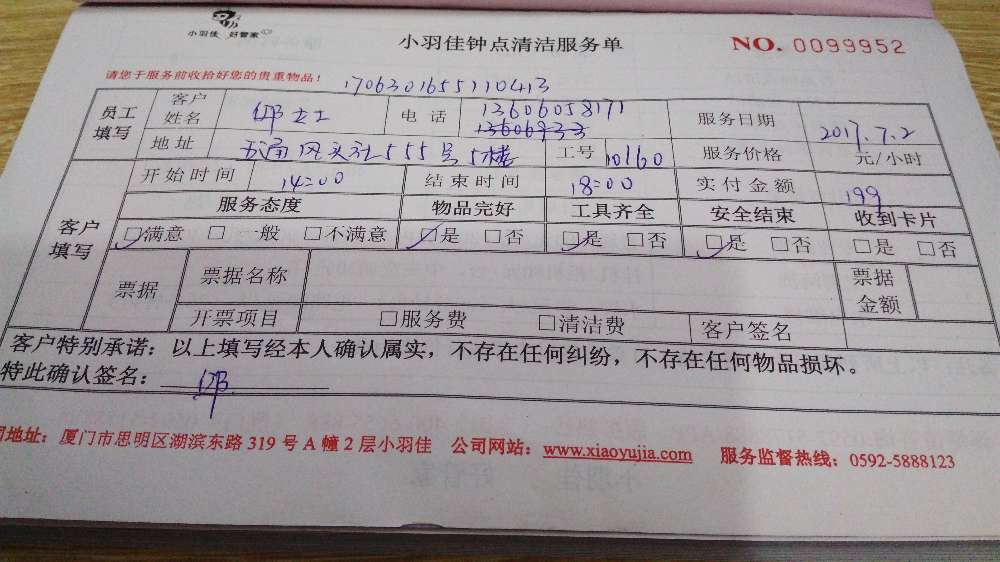 小羽佳 好管家
小羽佳钟点清洁服务单
NO. 0099952
请您于服务前收拾好您的贵重物品!
1706301655110413
员工填写 客户姓名 邝女士 电话 13606058171 服务日期 2017.7.2
地址 五通凤头社555号5楼 工号 10160 服务价格 元/小时
开始时间 14:00 结束时间 18:00 实付金额 199
客户填写 服务态度 物品完好 工具齐全 安全结束 收到卡片
☑满意 □一般 □不满意 ☑是 □否 ☑是 □否 ☑是 □否 □是 □否
票据 票据名称 票据金额
开票项目 □服务费 □清洁费 客户签名
客户特别承诺：以上填写经本人确认属实，不存在任何纠纷，不存在任何物品损坏。
特此确认签名： 邝
司地址：厦门市思明区湖滨东路 319 号 A 幢 2 层小羽佳 公司网站：www.xiaoyujia.com 服务监督热线：0592-5888123